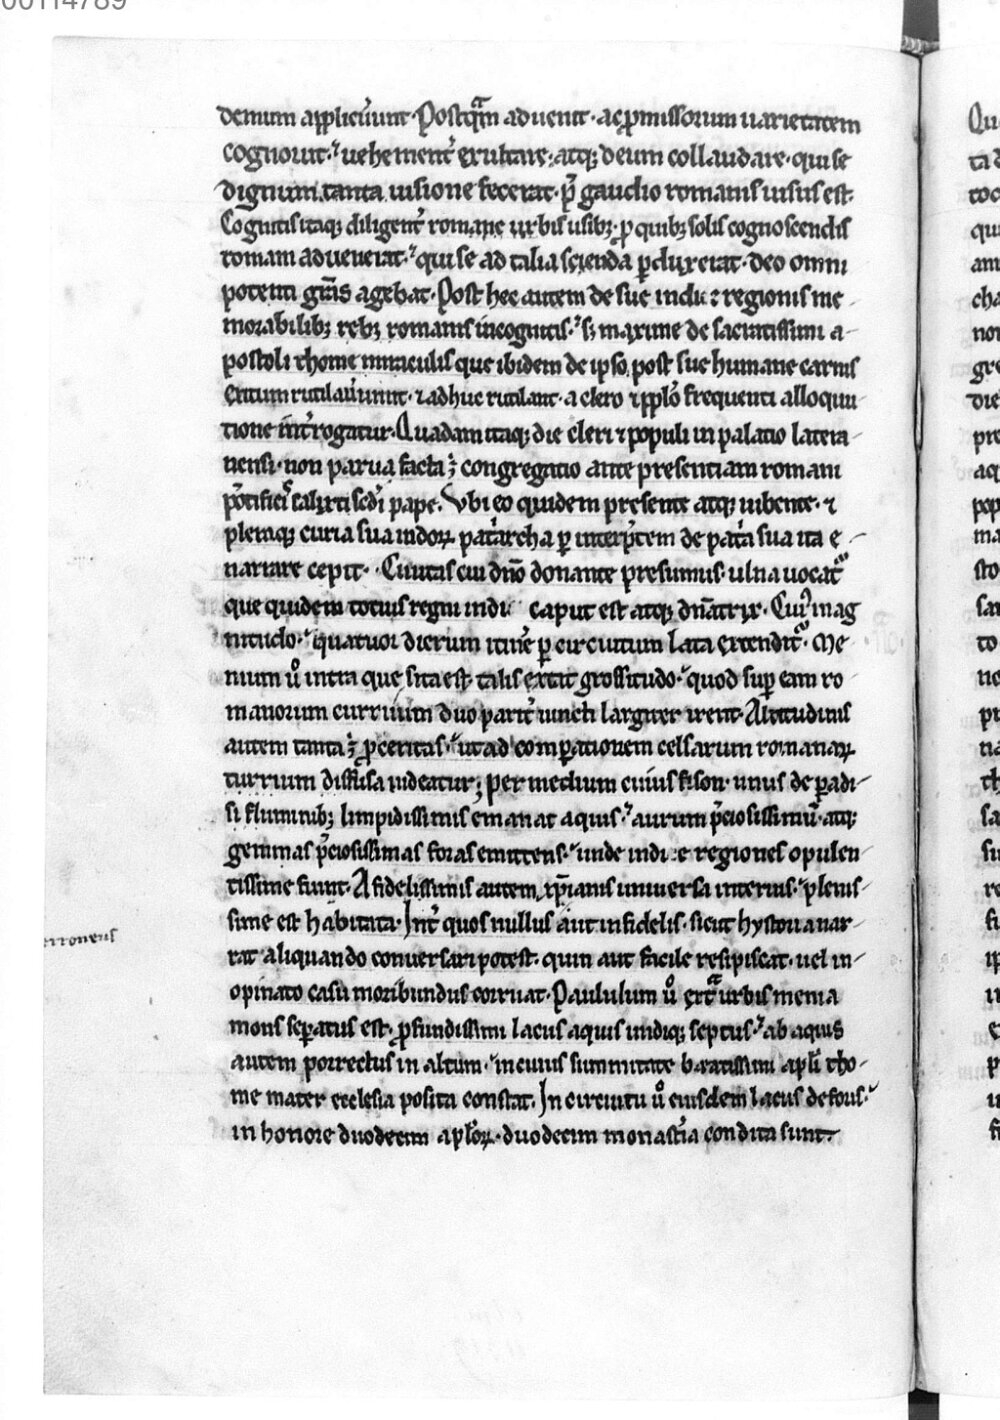 00114789
demum applicuer̄unt. Postqᵃm aduenit. ac ꝓmissorum uarietatem
cognouit. uehement̉ exultare. atq; deum collaudare. qui se
dignum tanta uisione fecerat. p̄ gaudio romanis uisus est.
Cognitis itaq; diligent̉ romane urbis usib; ꝓ quib; solis cognoscendis
romam aduenerat. qui se ad talia scienda ꝑduxerat. deo omni
potenti gr̄as agebat. Post hec autem de sue indię regionis me
morabilib; reb; romanis incognitis. s; maxime de sacratissimi a
postoli thome miraculis que ibidem de ipso post sue humane carnis
exitum rutilauer̄unt. ⁊ adhuc rutilant. a clero ⁊ pplo̅ frequenti alloquu
tione int̉rogatur. Quadam itaq; die cleri ⁊ populi in palatio latera
nensi. non parua facta ē congregatio ante presentiam romani
pōtificis calixti scdi̅ pape. Vbi eo quidem presente atq; iubente. ⁊
pleniq; curia sua indoꝝ patᵃrcha ꝑ interp̄tem de patᵃ sua ita e
narrare cepit. Ciuitas cui dn̄o donante presumus. ulna uocat̉
que quidem totius regni indię caput est atq; dn̄atrix. Cui⁹ mag
nitudo. quatuor dierum itin̄e ꝑ circuitum lata extendit̉. Me
nium ů intra que sita est. talis extat grossitudo. quod suꝑ eam ro
manorum curruum duo parit̉ iuncti largiter irent. Altitudinis
autem tanta ē ꝓceritas. ut ad comꝑationem celsarum romanaꝝ
turrium diffusa uideatur; per medium cuius fison. unus de ꝑadi
si fluminib; limpidissimis emanat aquis. aurum p̄ciosissimū. atq;
gemmas p̄ciosissimas foras emittens. unde indię regiones opulen
tissime fiunt. A fidelissimis autem xp̄ianis uniuersa interius. plenis
sime est habitata. Int̉ quos nullus aut infidelis. sicut hystoria nar
rat aliquando conuersari potest. quin aut facile resipiscat. uel in
erroneus
opinato casu moribundus corruat. Paululum ů extᵃ urbis menia
mons seꝑatus est. ꝓfundissimi lacus aquis undiq; septus. ab aquis
autem porrectus in altum. in cuius summitate beatissimi apl̄i tho
me mater ecclesia posita constat. In circuitu ů eiusdem lacus deforis.
in honore duodecim apl̄oꝝ. duodecim monast̉ia condita sunt.